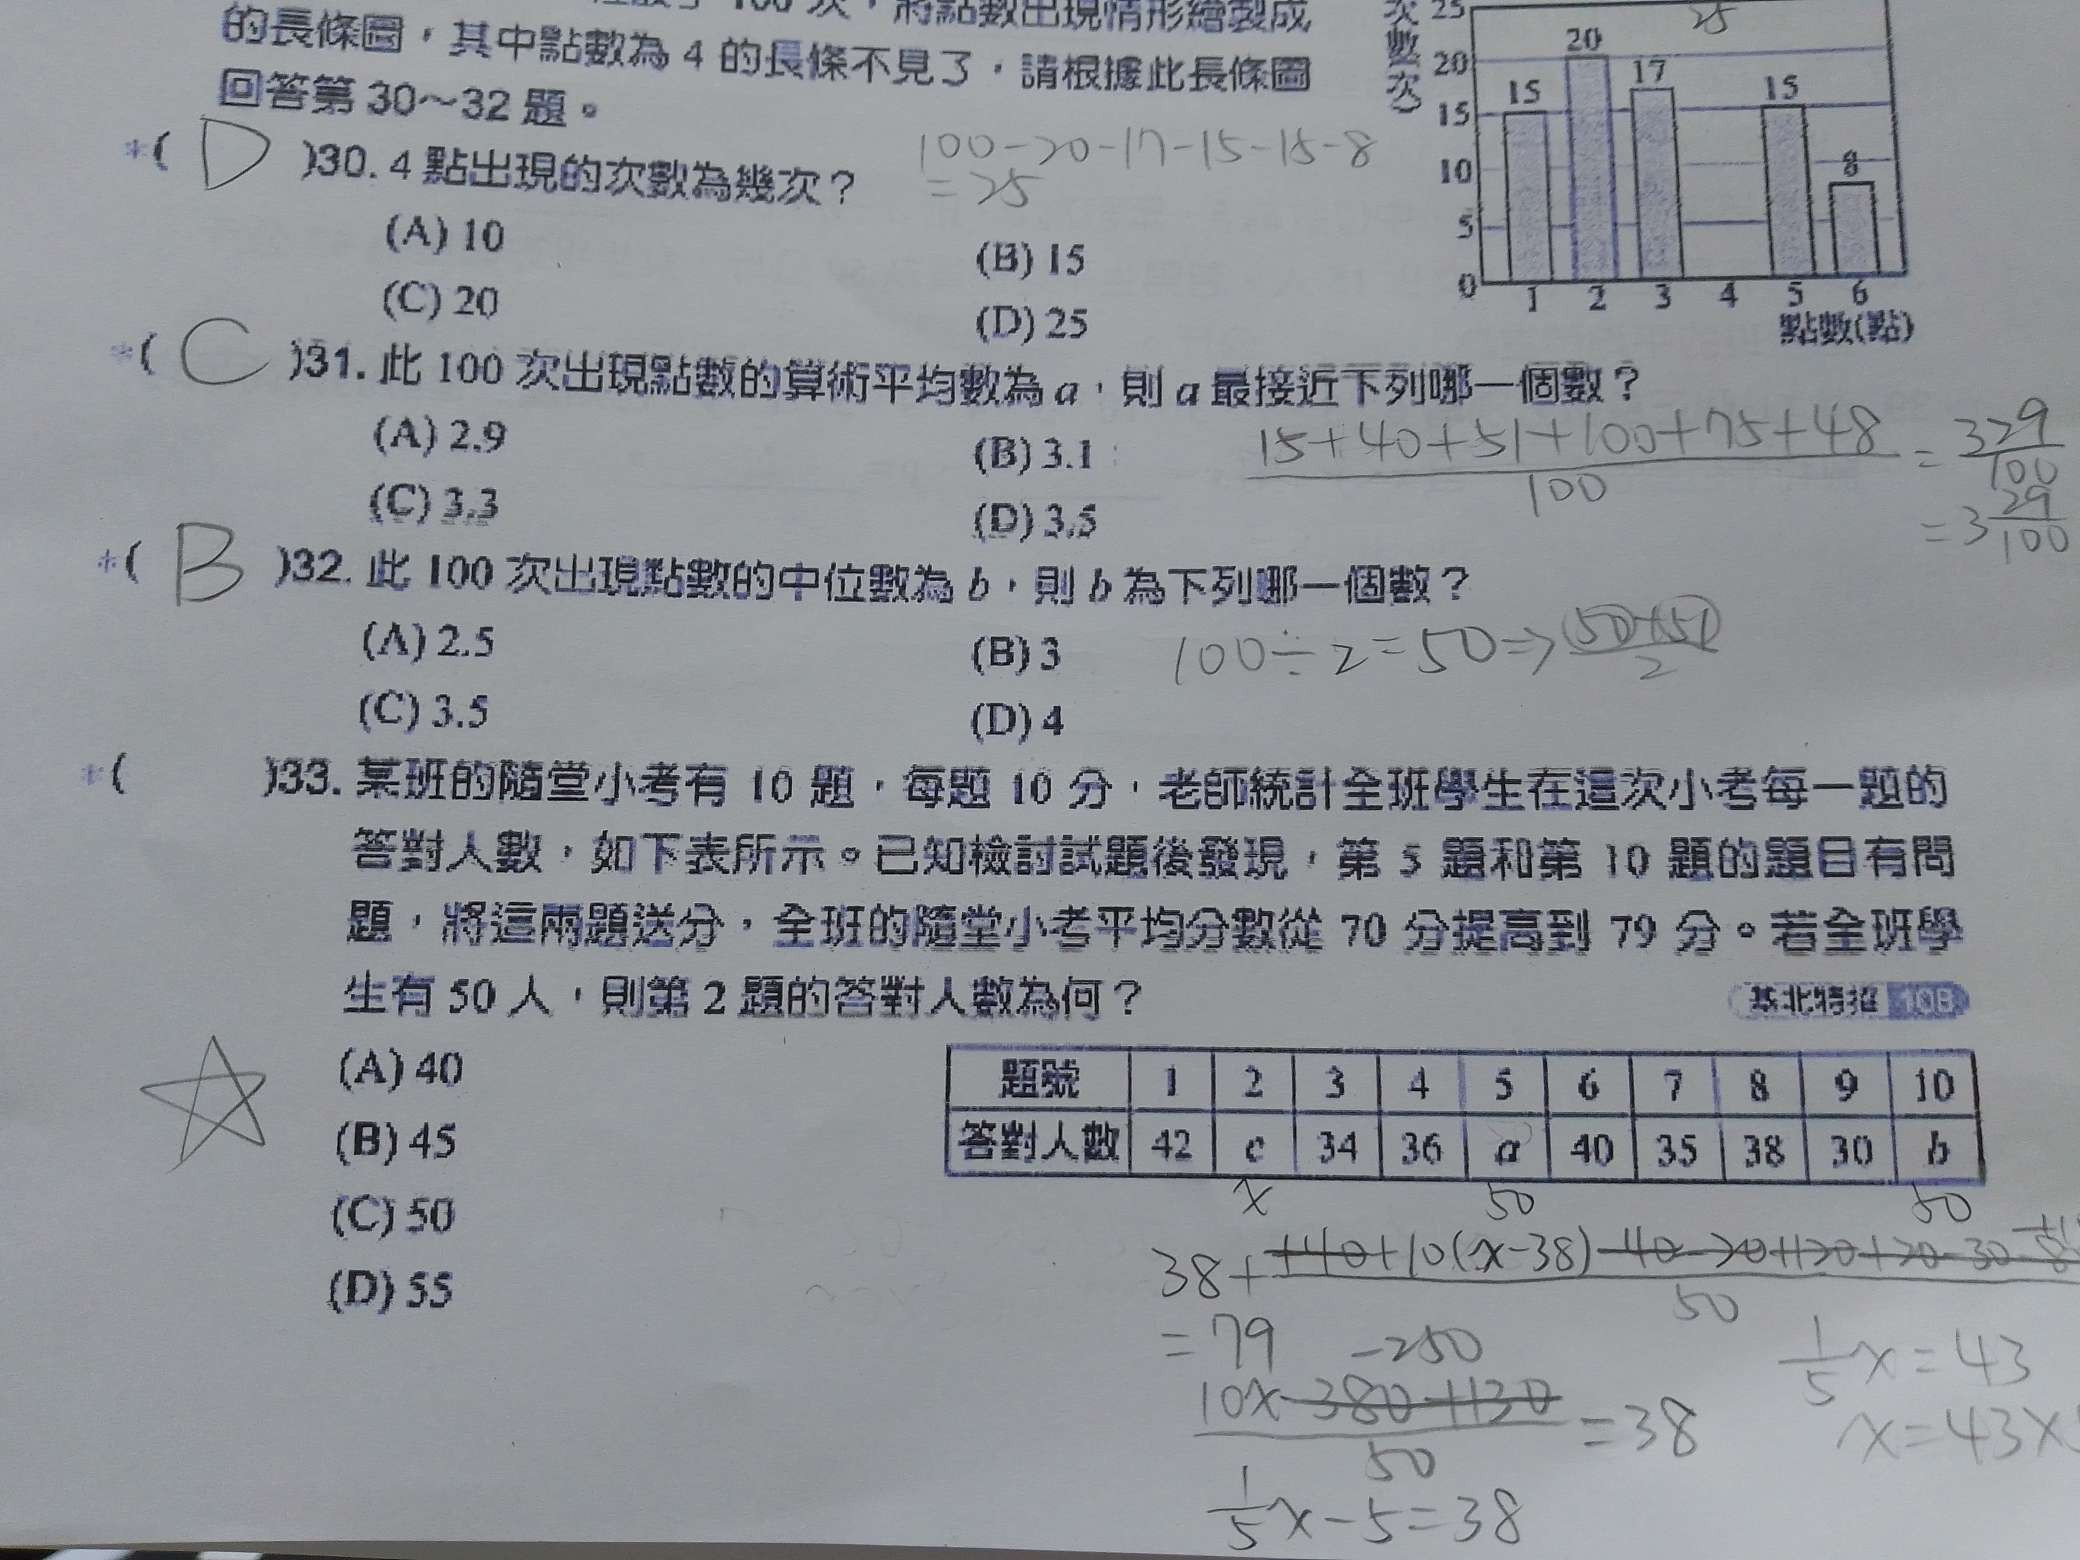 100 次，將點數出現情形繪製成
的長條圖，其中點數為 4 的長條不見了，請根據此長條圖
回答第 30～32 題。
次數(次)
25
20
15
10
5
0
25
15
20
17
15
8
1 2 3 4 5 6
點數(點)
*( D )30. 4 點出現的次數為幾次？
100-20-17-15-15-8
=25
(A) 10
(B) 15
(C) 20
(D) 25
*( C )31. 此 100 次出現點數的算術平均數為 a，則 a 最接近下列哪一個數？
(A) 2.9
(B) 3.1
(C) 3.3
(D) 3.5
15+40+51+100+75+48
100
= 329
100
= 3 29
100
*( B )32. 此 100 次出現點數的中位數為 b，則 b 為下列哪一個數？
(A) 2.5
(B) 3
(C) 3.5
(D) 4
100÷2=50⇒ 50+51
2
*( )33. 某班的隨堂小考有 10 題，每題 10 分，老師統計全班學生在這次小考每一題的
答對人數，如下表所示。已知檢討試題後發現，第 5 題和第 10 題的題目有問
題，將這兩題送分，全班的隨堂小考平均分數從 70 分提高到 79 分。若全班學
生有 50 人，則第 2 題的答對人數為何？
基北特招 108
(A) 40
(B) 45
(C) 50
(D) 55
題號 1 2 3 4 5 6 7 8 9 10
答對人數 42 c 34 36 a 40 35 38 30 b
x 50 50
38+ +40+10(x-38)-40-20+120+20-30-8
50
=79 -250
10x-380+130
50
=38
1/5x-5=38
1/5x=43
x=43×